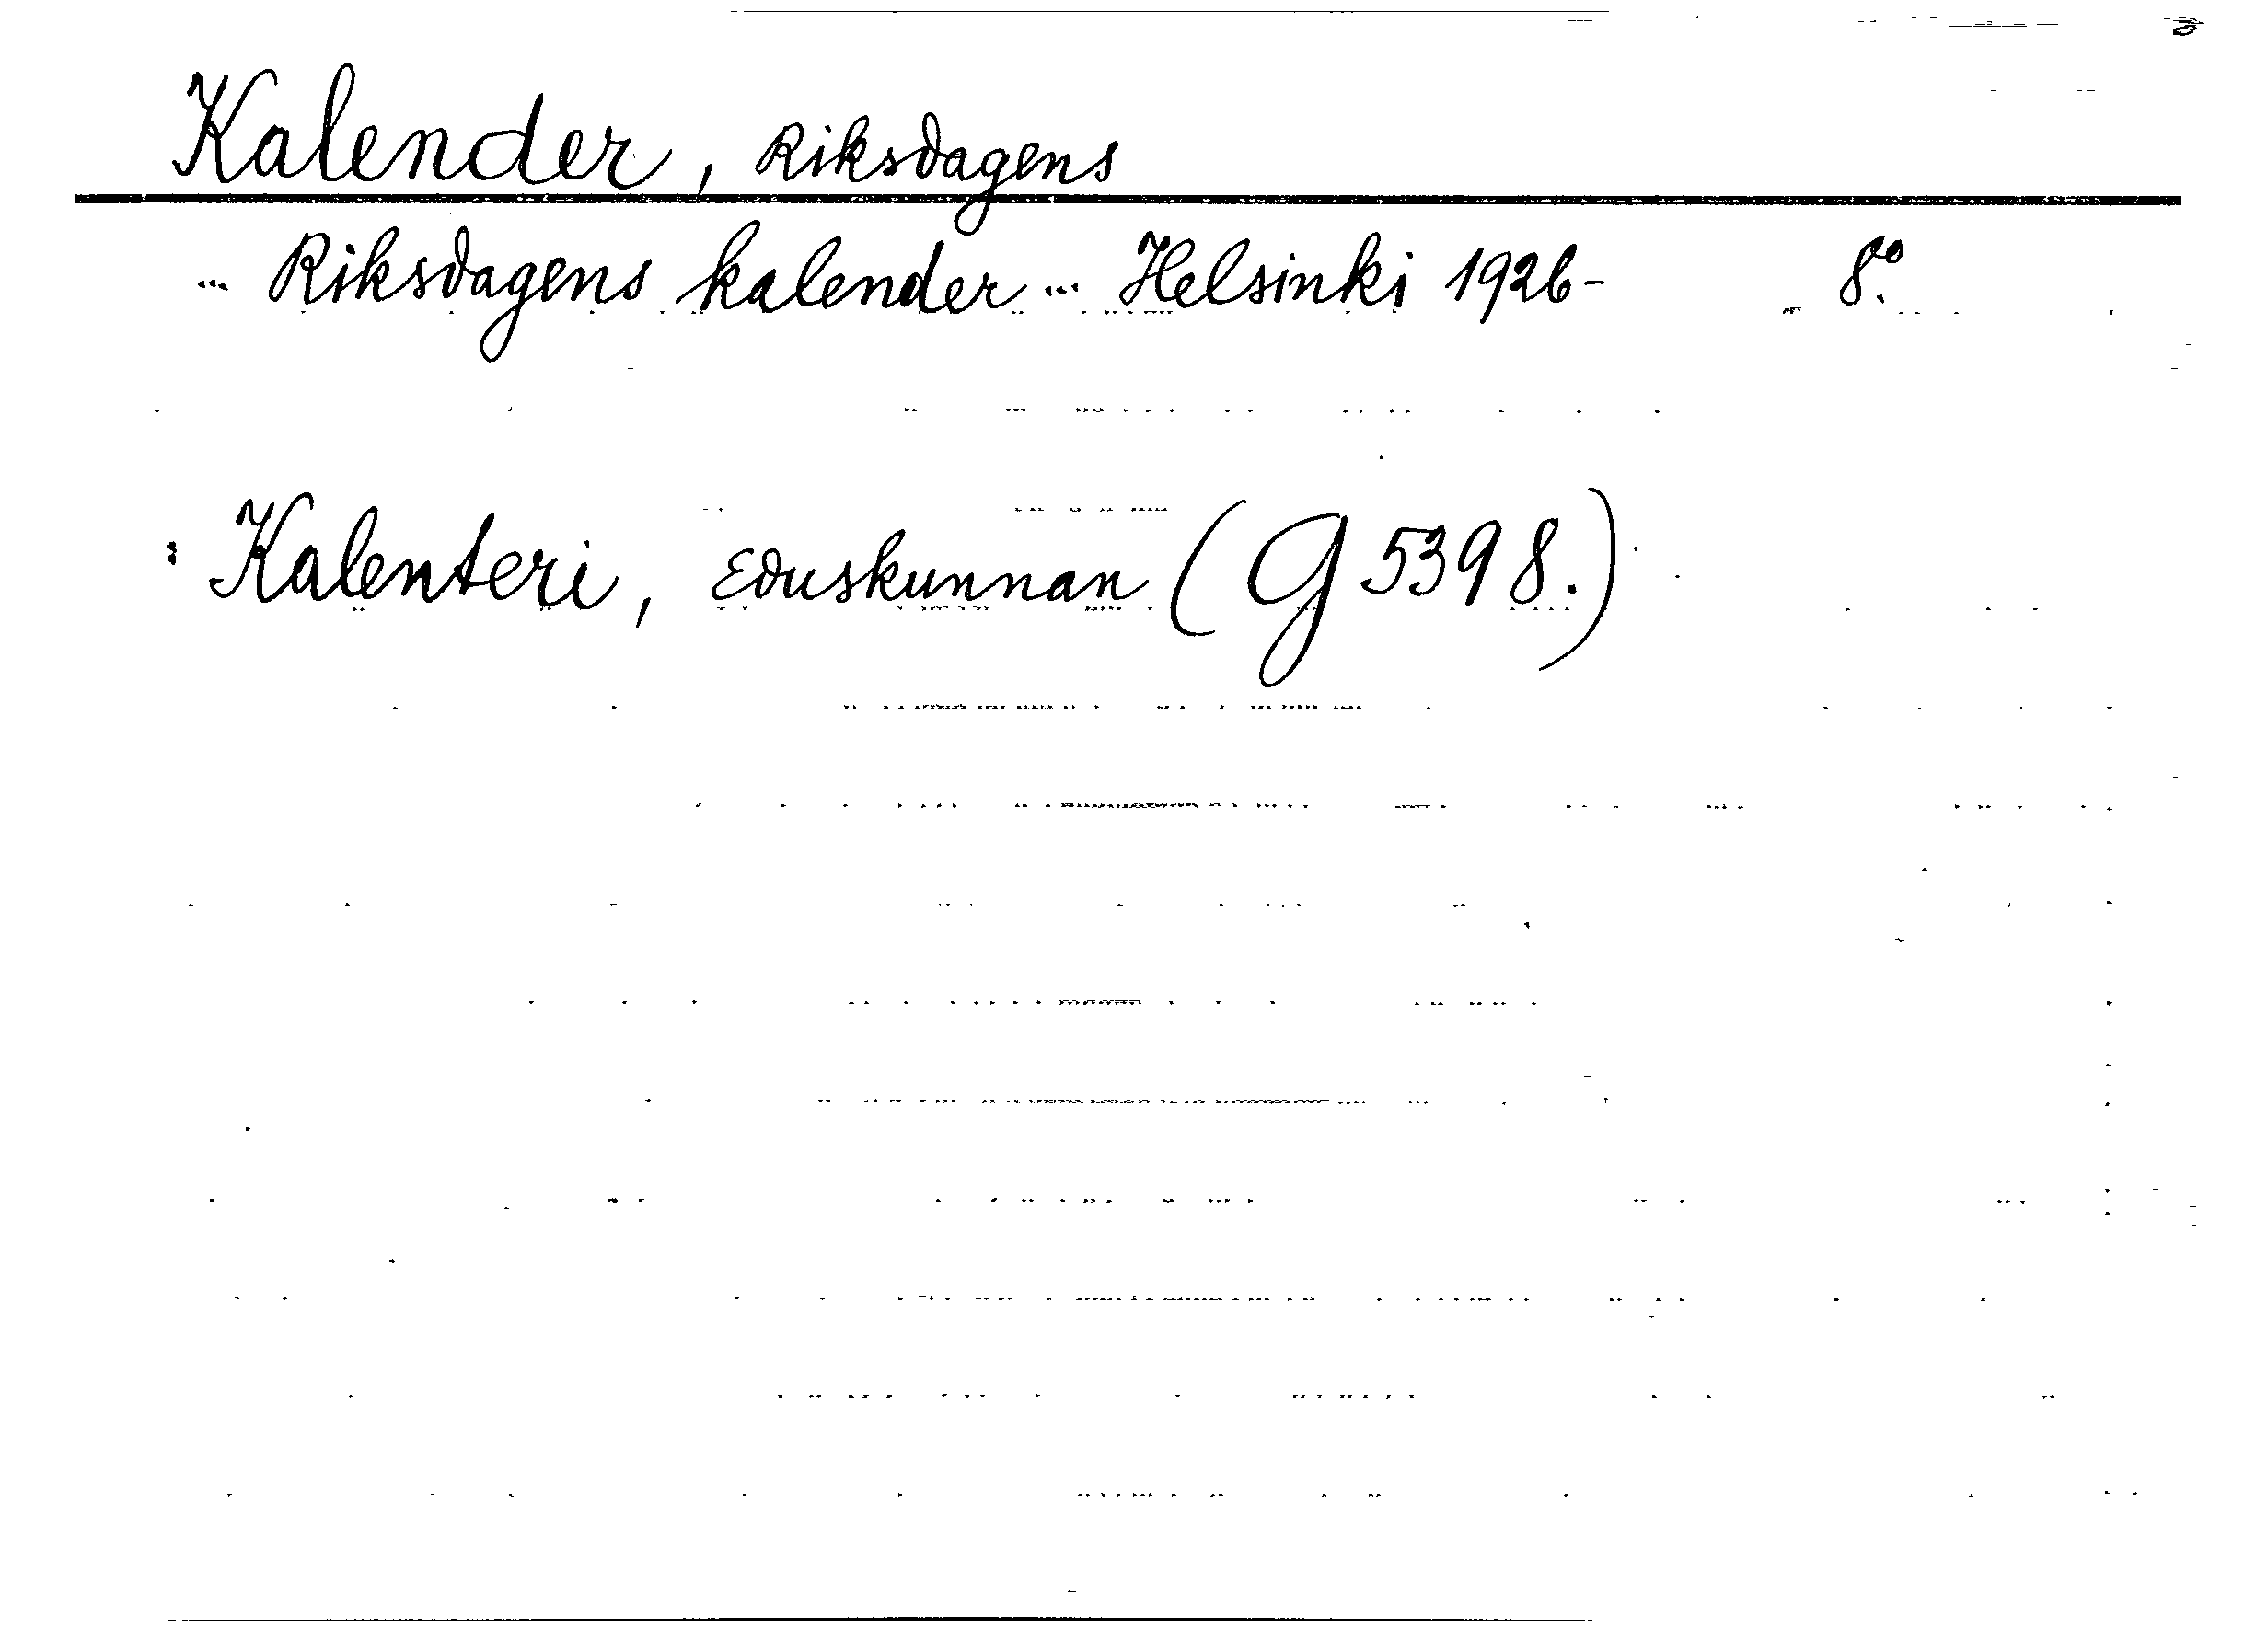 Kalender, Riksdagens
... Riksdagens kalender ... Helsinki 1926- 8:o
: Kalenteri, Eduskunnan (G 5398.)